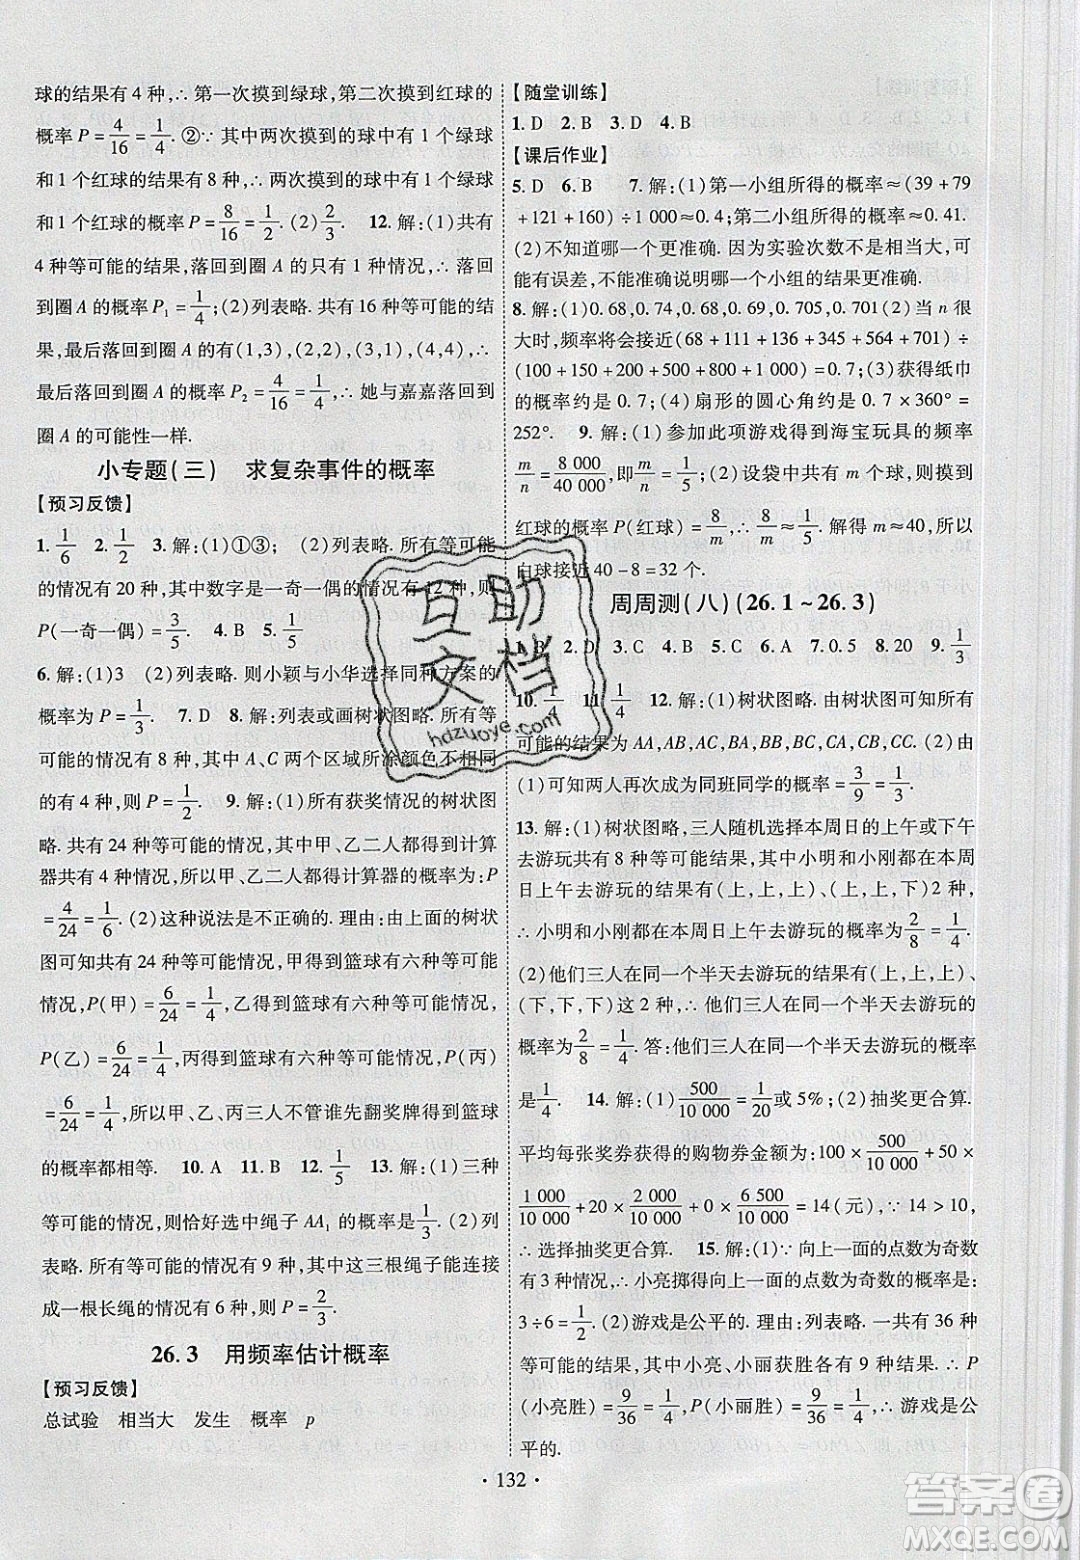 球的结果有 4 种,∴ 第一次摸到绿球,第二次摸到红球的
概率 P = 4/16 = 1/4. ②∵ 其中两次摸到的球中有 1 个绿球
和 1 个红球的结果有 8 种,∴ 两次摸到的球中有 1 个绿球
和 1 个红球的概率 P = 8/16 = 1/2; (2) 2/3 12. 解:(1)共有
4 种等可能的结果,落回到圈 A 的只有 1 种情况,∴ 落回到
圈 A 的概率 P₁ = 1/4;(2)列表略. 共有 16 种等可能的结
果,最后落回到圈 A 的有(1,3),(2,2),(3,1),(4,4),∴
最后落回到圈 A 的概率 P₂ = 4/16 = 1/4,∴ 她与嘉嘉落回到
圈 A 的可能性一样.
小专题(三) 求复杂事件的概率
【预习反馈】
1. 1/6 2. 1/2 3. 解:(1)①③; (2)列表略. 所有等可能
的情况有 20 种,其中数字是一奇一偶的情况有 12 种,则
P(一奇一偶) = 3/5. 4. B 5. 1/4
6. 解:(1)3 (2)列表略. 则小颖与小华选择同种方案的
概率为 P = 1/3. 7. D 8. 解:列表或画树状图略. 所有等
可能的情况有 4 种,其中 A、C 两个区域所涂颜色不相同的
有 2 种,则 P = 1/2. 9. 解:(1)所有获奖情况的树状图
略. 共有 24 种等可能的情况,其中甲、乙二人都得到计算
器共有 4 种情况,∴ 甲、乙二人都得计算器的概率为:P
= 4/24 = 1/6. (2)这种说法是不正确的. 理由:由上面的树状
图可知共有 24 种等可能情况,甲得到篮球有六种等可能
情况,P(甲) = 6/24 = 1/4,乙得到篮球有六种等可能情况,
P(乙) = 6/24 = 1/4,丙得到篮球有六种等可能情况,P(丙)
6/24 = 1/4,所以甲、乙、丙三人不管谁先翻奖牌得到篮球
的概率都相等. 10. A 11. B 12. 1/5 13. 解:(1)三种
等可能的情况,则恰好选中绳子 AA₁ 的概率为 1/3. (2)列
表略. 所有等可能的情况有 9 种,其中这三根绳子能连接
成一根长绳的情况有 6 种,则 P = 2/3.
26. 3 用频率估计概率
【预习反馈】
总试验 相当大 发生 概率 p
【随堂训练】
1. D 2. B 3. D 4. B
【课后作业】
5. D 6. B 7. 解:(1)第一小组所得的概率 ≈ (39 + 79
+ 121 + 160) ÷ 1 000 ≈ 0. 4;第二小组所得的概率 ≈ 0. 41.
(2)不知道哪一个更准确. 因为实验次数不是相当大,可能
有误差,不能准确说明哪一个小组的结果更准确.
8. 解:(1)0. 68,0. 74,0. 68,0. 69,0. 705,0. 701(2)当 n 很
大时,频率将会接近(68 + 111 + 136 + 345 + 564 + 701) ÷
(100 + 150 + 200 + 500 + 800 + 1 000) ≈ 0. 7;(3)获得纸巾
的概率约是 0. 7;(4)扇形的圆心角约是 0. 7 × 360° =
252°. 9. 解:(1)参加此项游戏得到海宝玩具的频率
m/n = 8 000/40 000,即 m/n = 1/5; (2)设袋中共有 m 个球,则摸到
红球的概率 P(红球) = 8/m,∴ 8/m = 1/5. 解得 m ≈ 40,所以
白球接近 40 - 8 = 32 个.
周周测(八)(26. 1 ~ 26. 3)
1. B 2. D 3. C 4. B 5. C 6. A 7. 0. 5 8. 20 9. 1/3
10. 1/4 11. 1/4 12. 解:(1)树状图略. 由树状图可知所有
可能的结果为 AA,AB,AC,BA,BB,BC,CA,CB,CC. (2)由
(1)可知两人再次成为同班同学的概率 = 3/9 = 1/3.
13. 解:(1)树状图略,三人随机选择本周日的上午或下午
去游玩共有 8 种等可能结果,其中小明和小刚都在本周
日上午去游玩的结果有(上,上,上)、(上,上,下)2 种,
∴ 小明和小刚都在本周日上午去游玩的概率为 2/8 = 1/4.
(2)他们三人在同一个半天去游玩的结果有(上,上,上)、
(下,下,下)这 2 种,∴ 他们三人在同一个半天去游玩的
概率为 2/8 = 1/4. 答:他们三人在同一个半天去游玩的概率
是 1/4. 14. 解:(1) 500/10 000 = 1/20 或 5%;(2)抽奖更合算.
平均每张奖券获得的购物券金额为:100 × 500/10 000 + 50 ×
1 000/10 000 + 20 × 2 000/10 000 + 0 × 6 500/10 000 = 14(元),∵ 14 > 10,
∴ 选择抽奖更合算. 15. 解:(1)∵ 向上一面的点数为奇数
有 3 种情况,∴ 小亮掷得向上一面的点数为奇数的概率是:
3 ÷ 6 = 1/2. (2)游戏是公平的. 理由:列表略,共有 36 种
等可能的结果,其中小亮、小丽获胜各有 9 种结果. ∴ P
(小亮胜) = 9/36 = 1/4,P(小丽胜) = 9/36 = 1/4,∴ 该游戏是公
平的.
· 132 ·
互助
文档
hdzuoye.com
答案圈
MXQE.COM